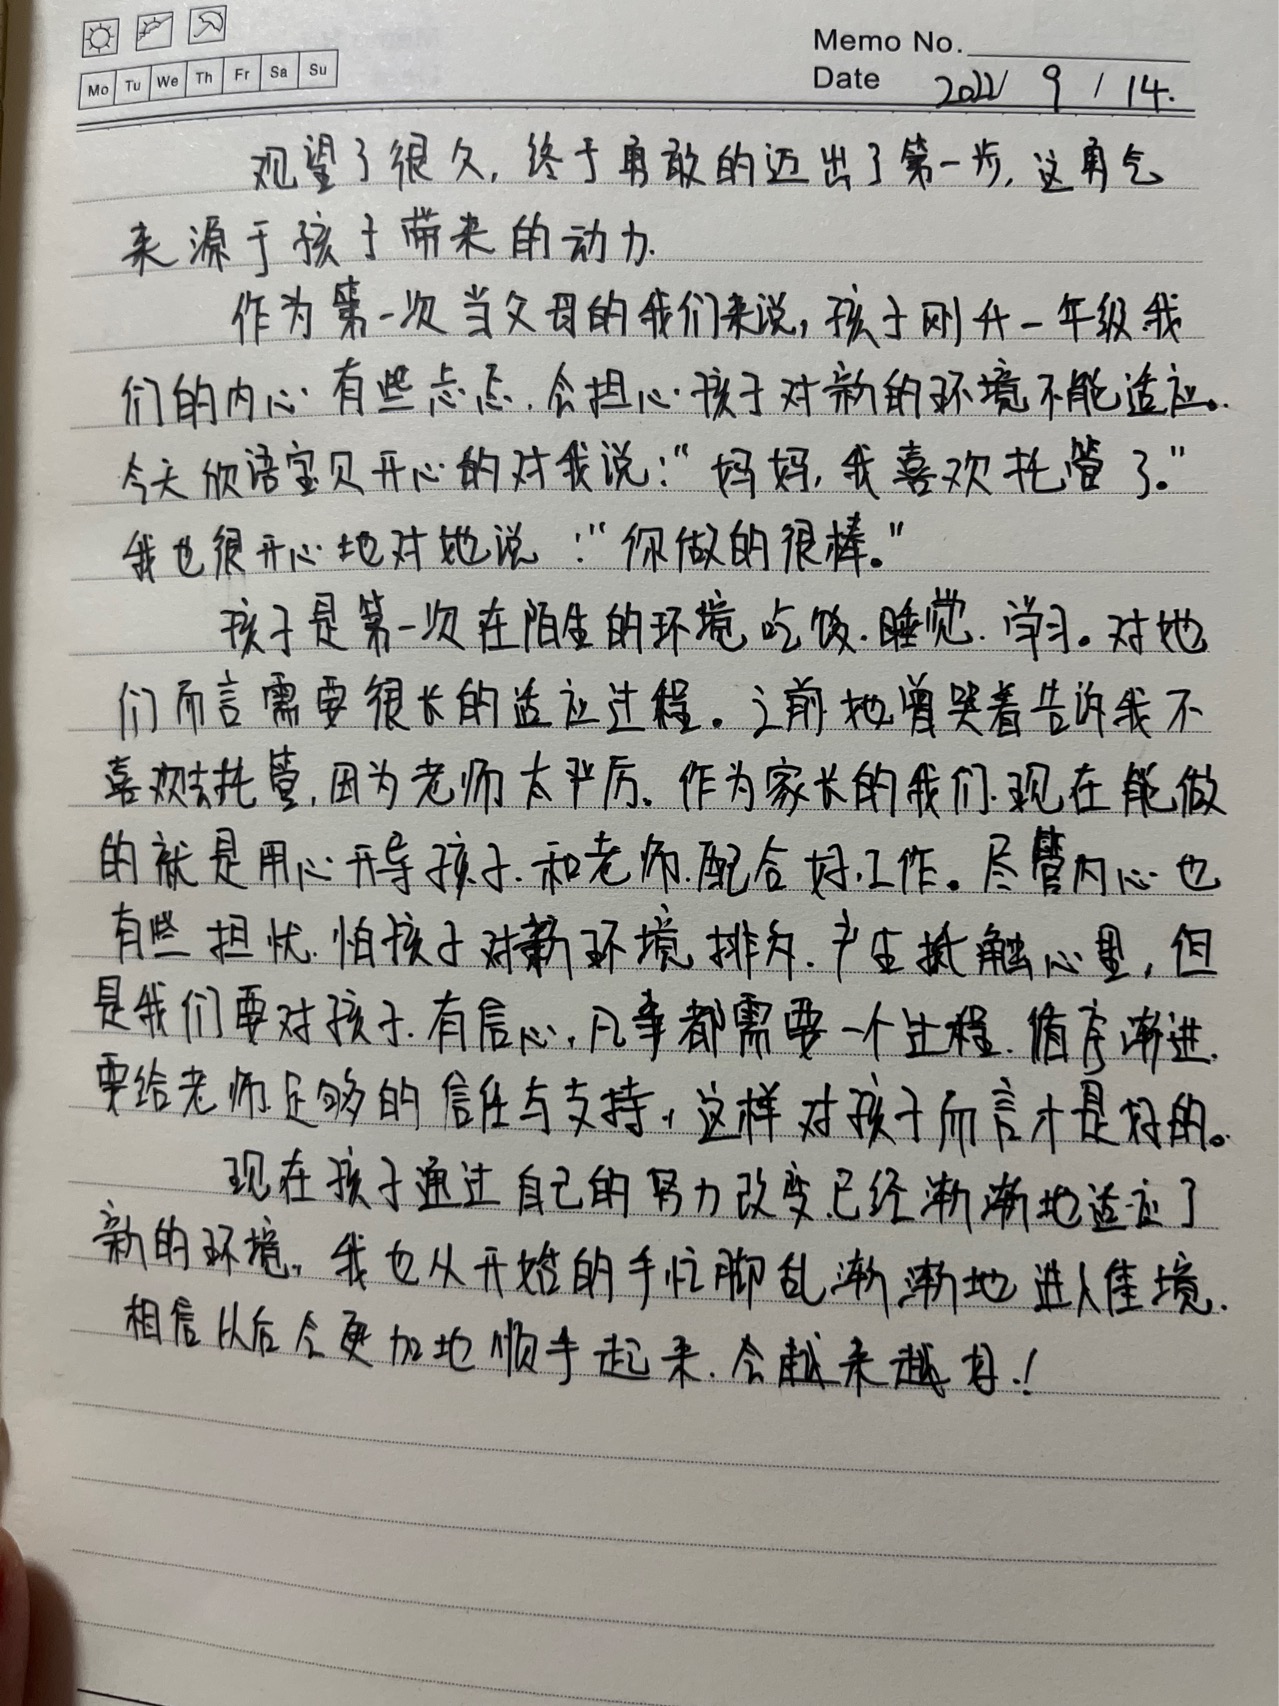 Memo No.
Mo Tu We Th Fr Sa Su
Date 2022/ 9 / 14.
观望了很久,终于勇敢的迈出了第一步,这勇气
来源于孩子带来的动力.
作为第一次当父母的我们来说,孩子刚升一年级.我
们的内心有些忐忑.会担心孩子对新的环境不能适应。
今天欣语宝贝开心的对我说:“妈妈,我喜欢托管了。”
我也很开心地对她说:“你做的很棒。”
孩子是第一次在陌生的环境吃饭.睡觉.学习。对她
们而言需要很长的适应过程。之前她曾哭着告诉我不
喜欢去托管,因为老师太严厉。作为家长的我们.现在能做
的就是用心开导孩子.和老师.配合好.工作。尽管内心也
有些担忧.怕孩子对新环境排外.产生抵触心里,但
是我们要对孩子.有信心,凡事都需要一个过程.循序渐进.
要给老师足够的信任与支持,这样对孩子而言才是好的。
现在孩子通过自己的努力改变.已经渐渐地适应了
新的环境,我也从开始的手忙脚乱渐渐地进入佳境.
相信以后会更加地顺手起来.会越来越好.!